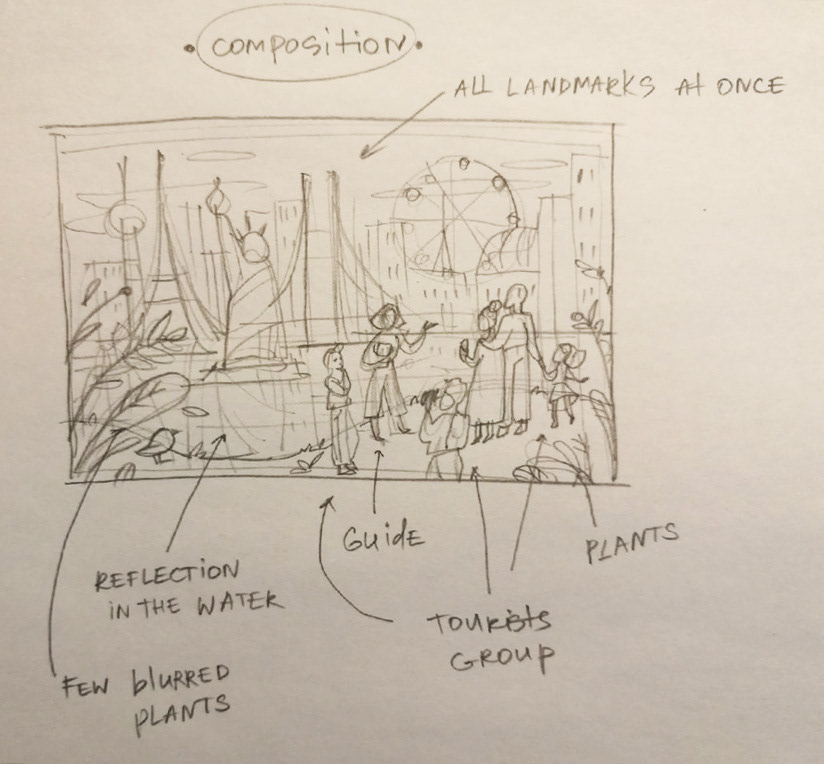 • COMPOSITION •
ALL LANDMARKS At ONCE
GUidE
PLANTS
REFLECTION
IN THE WATER
TOURists
GROUP
FEW blURRED
PLANTS